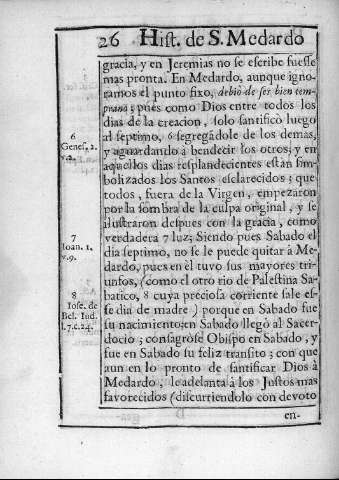 26 Hist. de S. Medardo
gracia, y en Jeremias no se escribe fuesse
mas pronta. En Medardo, aunque igno-
ramos el punto fixo, debiò de ser bien tem-
prano; pues como Dios entre todos los
dias de la creacion, solo santificò luego
al septimo, 6 segregãdole de los demas,
y aguardando à bendecir los otros, y en
aquellos dias resplandecientes estàn sim-
bolizados los Santos esclarecidos; que
todos, fuera de la Virgen, empezaron
por la sombra de la culpa original, y se
ilustraron despues con la gracia, como
verdadera 7 luz; Siendo pues Sabado el
dia septimo, no se le puede quitar à Me-
dardo, pues en èl tuvo sus mayores triu-
unfos, (como el otro rio de Palestina Sa-
batico, 8 cuya preciosa corriente sale es-
se dia de madre) porque en Sabado fue
su nacimiento; en Sabado llegò al Sacer-
docio; consagròse Obispo en Sabado, y
fue en Sabado su feliz transito; con que
aun en lo pronto de santificar Dios à
Medardo, le adelanta à los Justos mas
favorecidos (discurriendolo con devoto
en-
6
Genes. 2.
v.2.
7
Ioan. 1.
v.9.
8
Iose. de
Bel. Iud.
l.7.c.24.